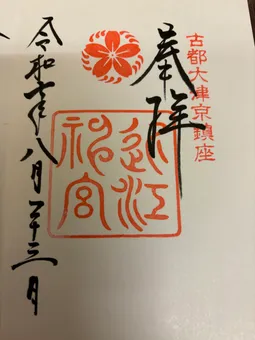 古都大津京鎮座
奉拝
近江神宮
令和七年八月二十三日